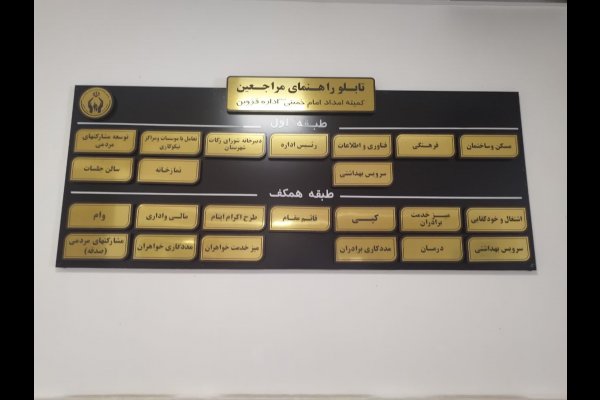 تابلو راهنمای مراجعین
کمیته امداد امام خمینی اداره قزوین
طبقه اول
مسکن وساختمان
فرهنگی
فناوری و اطلاعات
رئیس اداره
دبیرخانه شورای زکات
شهرستان
تعامل با موسسات ومراکز
نیکوکاری
توسعه مشارکتهای
مردمی
سرویس بهداشتی
نمازخانه
سالن جلسات
طبقه همکف
اشتغال و خودکفایی
میز خدمت
برادران
کپی
قائم مقام
طرح اکرام ایتام
مالی واداری
وام
سرویس بهداشتی
درمان
مددکاری برادران
میز خدمت خواهران
مددکاری خواهران
مشارکتهای مردمی
(صدقه)